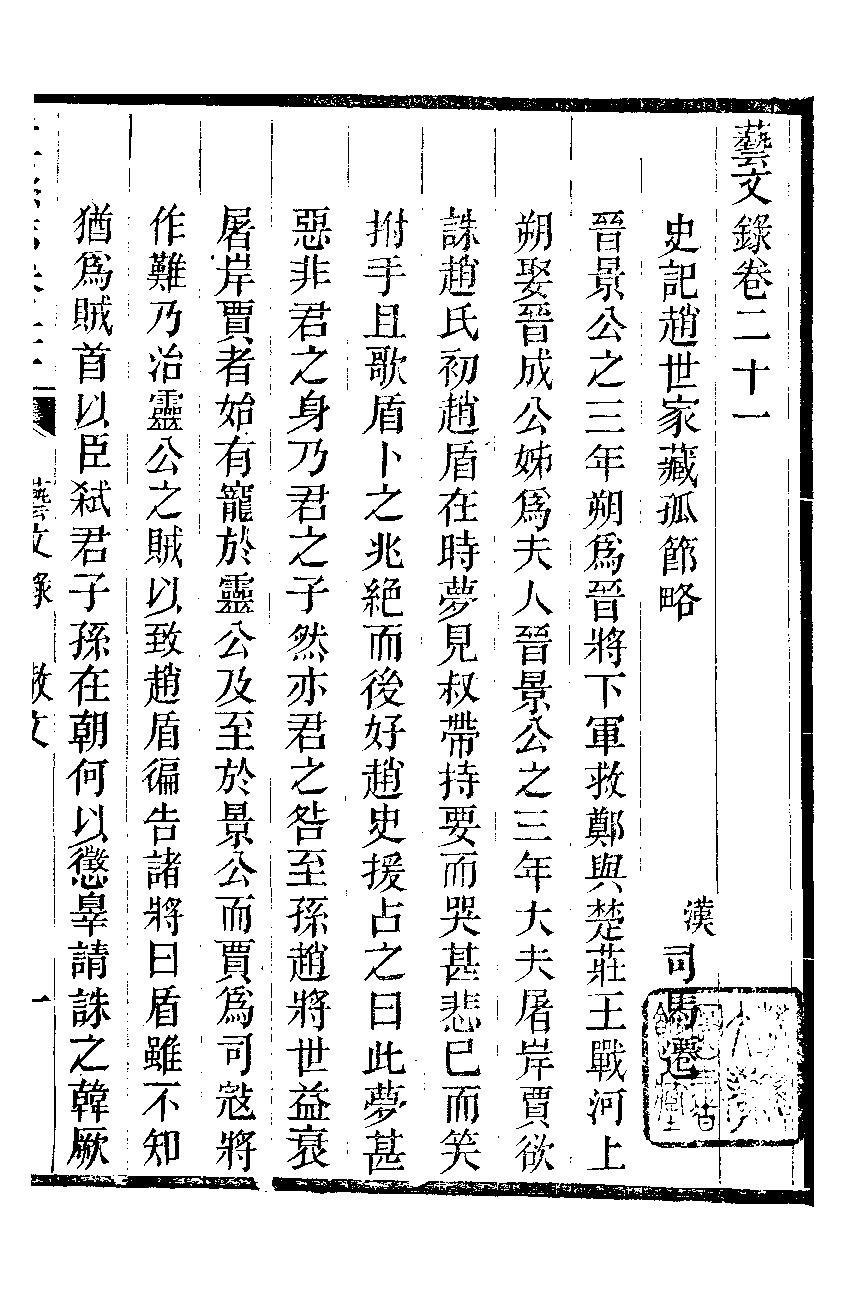 藝文錄卷二十一
史記趙世家藏孤節略
漢 司馬遷
晉景公之三年朔爲晉將下軍救鄭與楚莊王戰河上
朔娶晉成公姊爲夫人晉景公之三年大夫屠岸賈欲
誅趙氏初趙盾在時夢見叔帶持要而哭甚悲已而笑
拊手且歌盾卜之兆絕而後好趙史援占之曰此夢甚
惡非君之身乃君之子然亦君之咎至孫趙將世益衰
屠岸賈者始有寵於靈公及至於景公而賈爲司寇將
作難乃治靈公之賊以致趙盾徧告諸將曰盾雖不知
猶爲賊首以臣弑君子孫在朝何以懲辠請誅之韓厥
藝文錄 散文 一